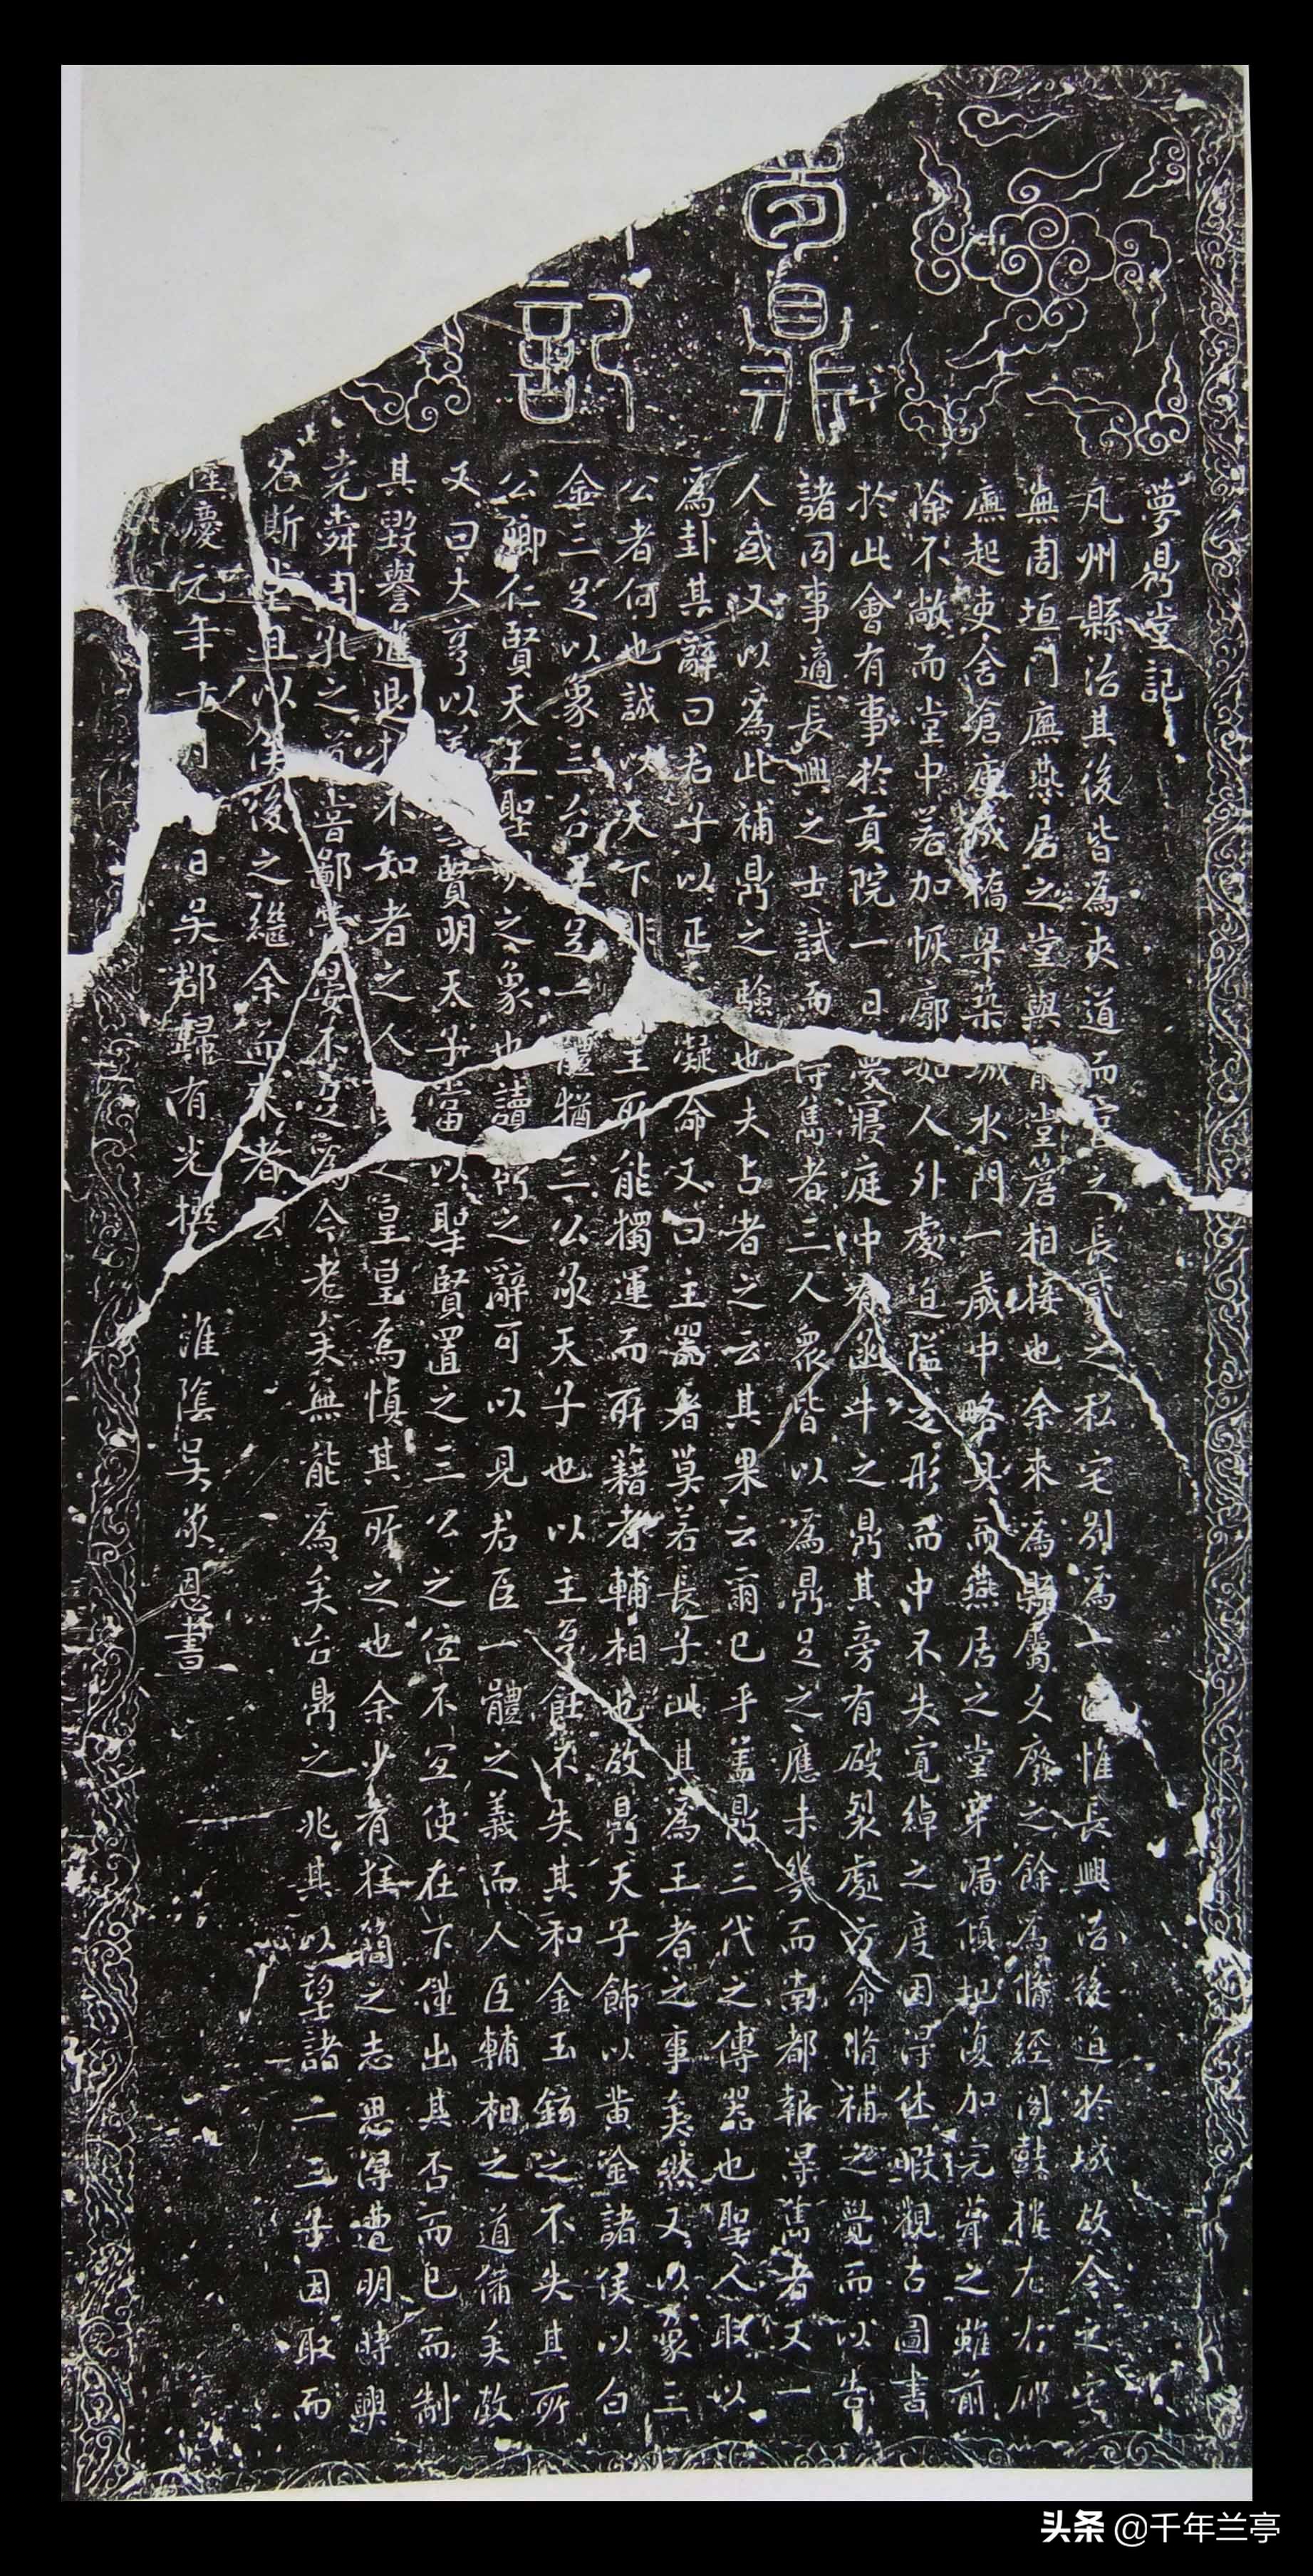 夢鼎
記
夢鼎堂記
凡州縣治其後皆為夾道而官之長貳之私宅別為一區惟長興治後迫於城故令之宅
無周垣門廡燕居之堂與前堂簷相接也余來為縣屬久廢之餘為脩經閣鼓樓左右廊
廡起吏舍倉庾成橋梁築城水門一歲中略具而燕居之堂穿漏傾圯復加完葺之雖前
除不敞而堂中若加恢廓如人外處迫隘之形而中不失寬綽之度因得休暇觀古圖書
於此會有事於貢院一日夢寢庭中有函牛之鼎其旁有破裂處方命脩補之覺而以告
諸同事適長興之士試而得雋者三人眾皆以為鼎足之應未幾而南都報得雋者又一
人或又以為此補鼎之驗也夫占者之云其果云爾已乎蓋鼎三代之傳器也聖人取以
為卦其辭曰君子以正凝命又曰主器者莫若長子此其為王者之事矣然又以象三
公者何也誠以天下非王所能獨運而所藉者輔相也故鼎天子飾以黃金諸侯以白
金三足以象三台三足一體猶三公承天子也以主烹飪不失其和金玉鉉之不失其所
公卿仁賢天王聖之象也讀之辭可以見君臣一體之義而人臣輔相之道備矣故
又曰大亨以賢明天子當以聖賢置之三公之位不宜使在下僅出其否而已而制
其毀譽進退於不知者之人之皇皇為慎其所之也余少有狂簡之志思得遭明時興
堯舜周孔之嘗鄙管晏不足為今老矣無能為矣台鼎之兆其以望諸二三子因取而
名斯堂且以俟後之繼余而來者云
隆慶元年十月日吳郡歸有光撰　淮陰吳承恩書
头条 @千年兰亭